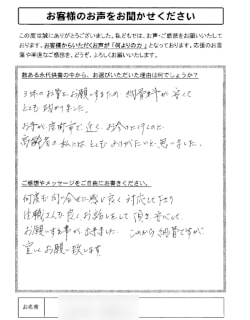 お客様のお声をお聞かせください
この度は誠にありがとうございました。私どもでは、お声・ご感想をお願いいたして
おります。お客様からいただくお声が「何よりの力」となっております。応援のお言
葉や率直なご感想を、どうぞ、よろしくお願いいたします。
数ある永代供養の中から、お選びいただいた理由は何でしょうか？
3体のお骨をお願いするため、納骨料が安くて
とても助かりました。
お寺が 近く、お参りに行くのに
高齢者の私にはとてもよかったと思いました。
ご感想やメッセージをご自由にお書きください。
何度も問い合せに感じ良く対応して下さり
住職さんも良くお話しをして頂き安心して
お願いする事が出来ました。これから納骨ですが、
宜しくお願い致します
お名前